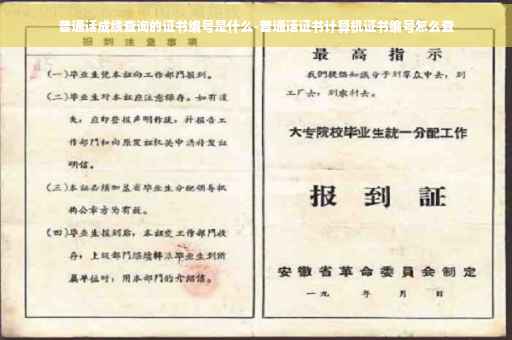 普通话成绩查询的证书编号是什么-普通话证书计算机证书编号怎么查
报到注意事项
(一)毕业生凭本证向工作部门报到。
(二)毕业生对本证应注意保存。如有遗
失,应即登报声明作废,并报告工
作部门和向原发证机关申请补发证
明信。
(三)本证必须加盖省毕业生分配领导机
构公章方为有效。
(四)毕业生报到后,本证交工作部门收
存,上级部门
属单位时,用本部门的介绍信。
最高指示
我们提倡知识分子到群众中去,到
工厂去,到农村去。
大专院校毕业生統一分配工作
报到証
安徽省革命委員会制定
一九 年 月 日